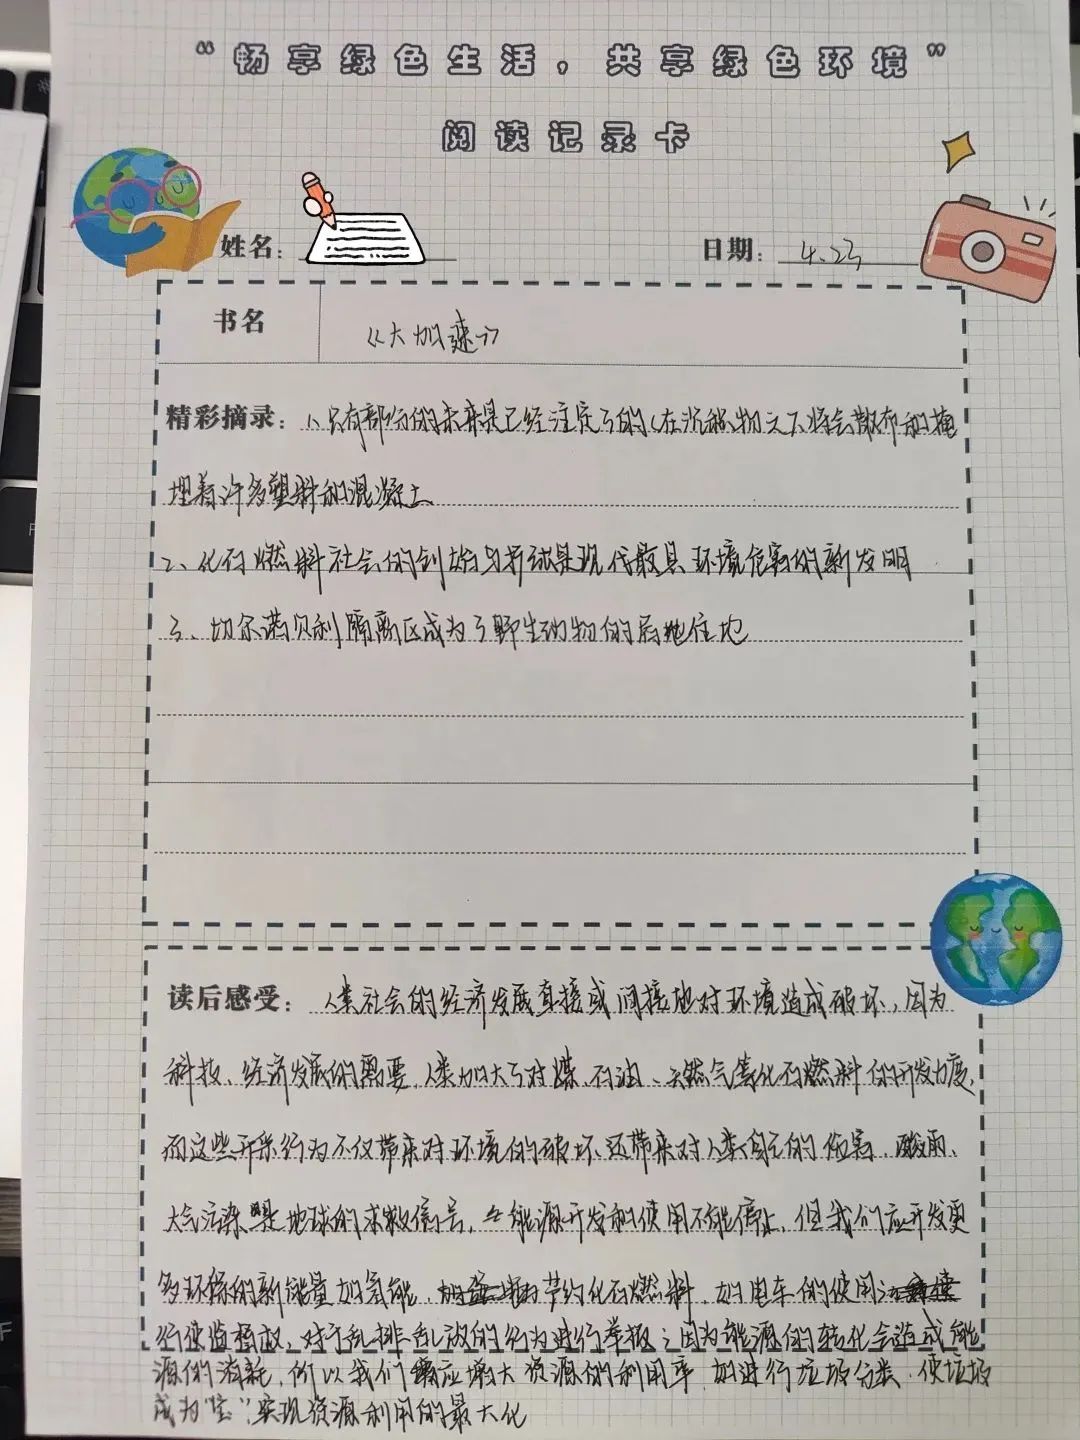 “畅享绿色生活，共享绿色环境”
阅读记录卡
姓名：
日期：4.23
书名
《大加速》
精彩摘录：1、只有部分的未来是已经注定了的（在沉积物之下将会散布和掩
埋着许多塑料和混凝土
2、化石燃料社会的创始与拓动是现代最具环境危害的新发明
3、切尔诺贝利隔离区成为了野生动物的居住地
读后感受：人类社会的经济发展直接或间接地对环境造成破坏，因为
科技、经济发展的需要，人类加大了对煤、石油、天然气等化石燃料的开发力度，
而这些开采行为不仅带来对环境的破坏、还带来对人类自己的危害，酸雨、
大气污染是地球的求救信号，能源开发和使用不能停止，但我们应开发更
多环保的新能量如氢能，节约化石燃料，如电车的使用；
行使监督权，对于乱排乱放的行为进行举报；因为能源的转化会造成能
源的消耗，所以我们应增大资源的利用率，如进行垃圾分类，使垃圾
成为“宝”，实现资源利用的最大化